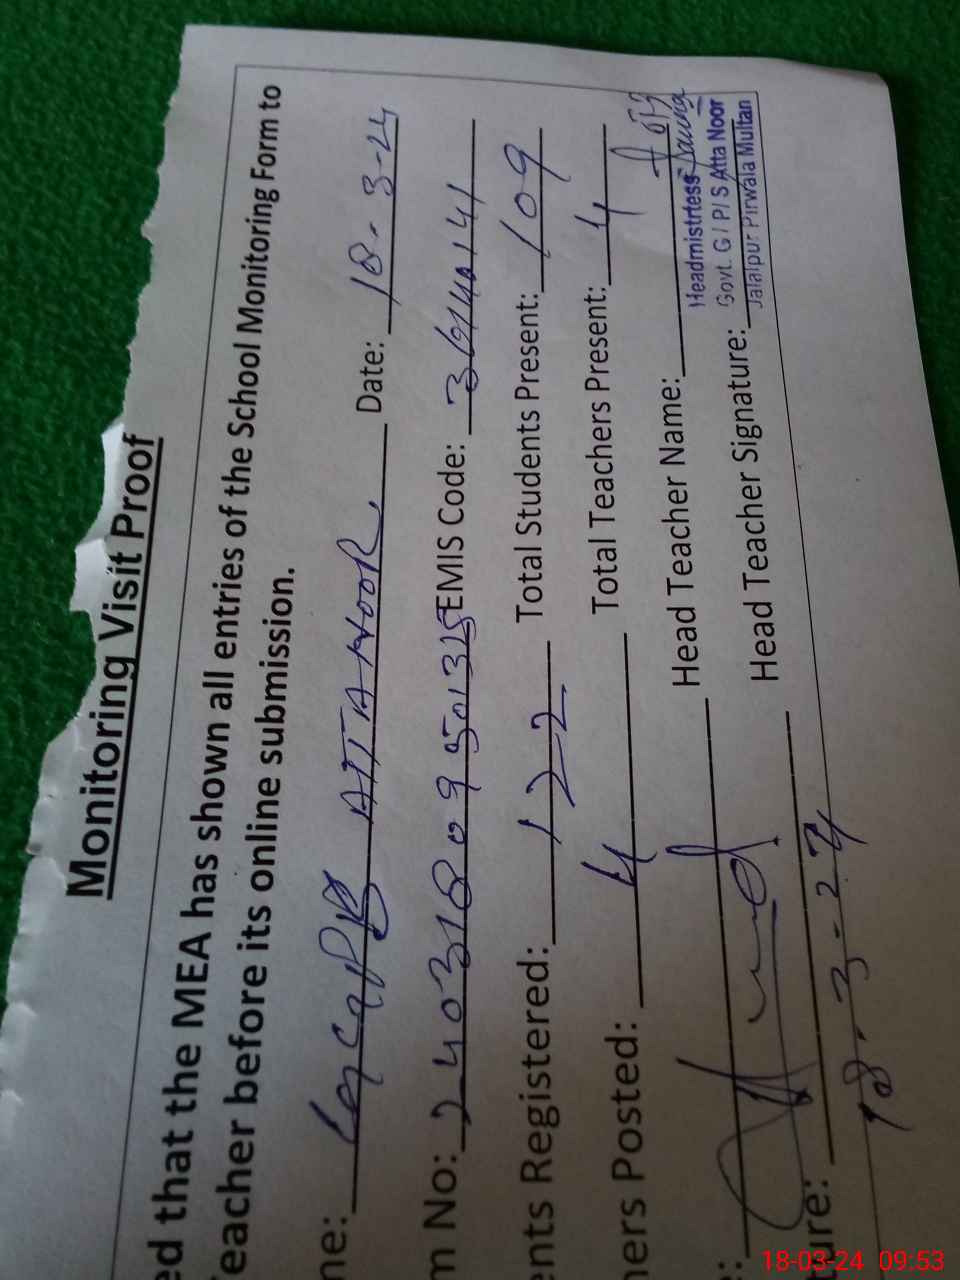 Monitoring Visit Proof
ed that the MEA has shown all entries of the School Monitoring Form to
Teacher before its online submission.
ne: ATTA NOOR Date: 18-3-24
m No: 24031809501325 EMIS Code:
ents Registered: 122 Total Students Present: 109
hers Posted: 4 Total Teachers Present: 4
e: Head Teacher Name:
Headmistrtess
Govt. G / P / S Atta Noor
ure: Head Teacher Signature: Jalalpur Pirwala Multan
18-3-24
18-03-24 09:53